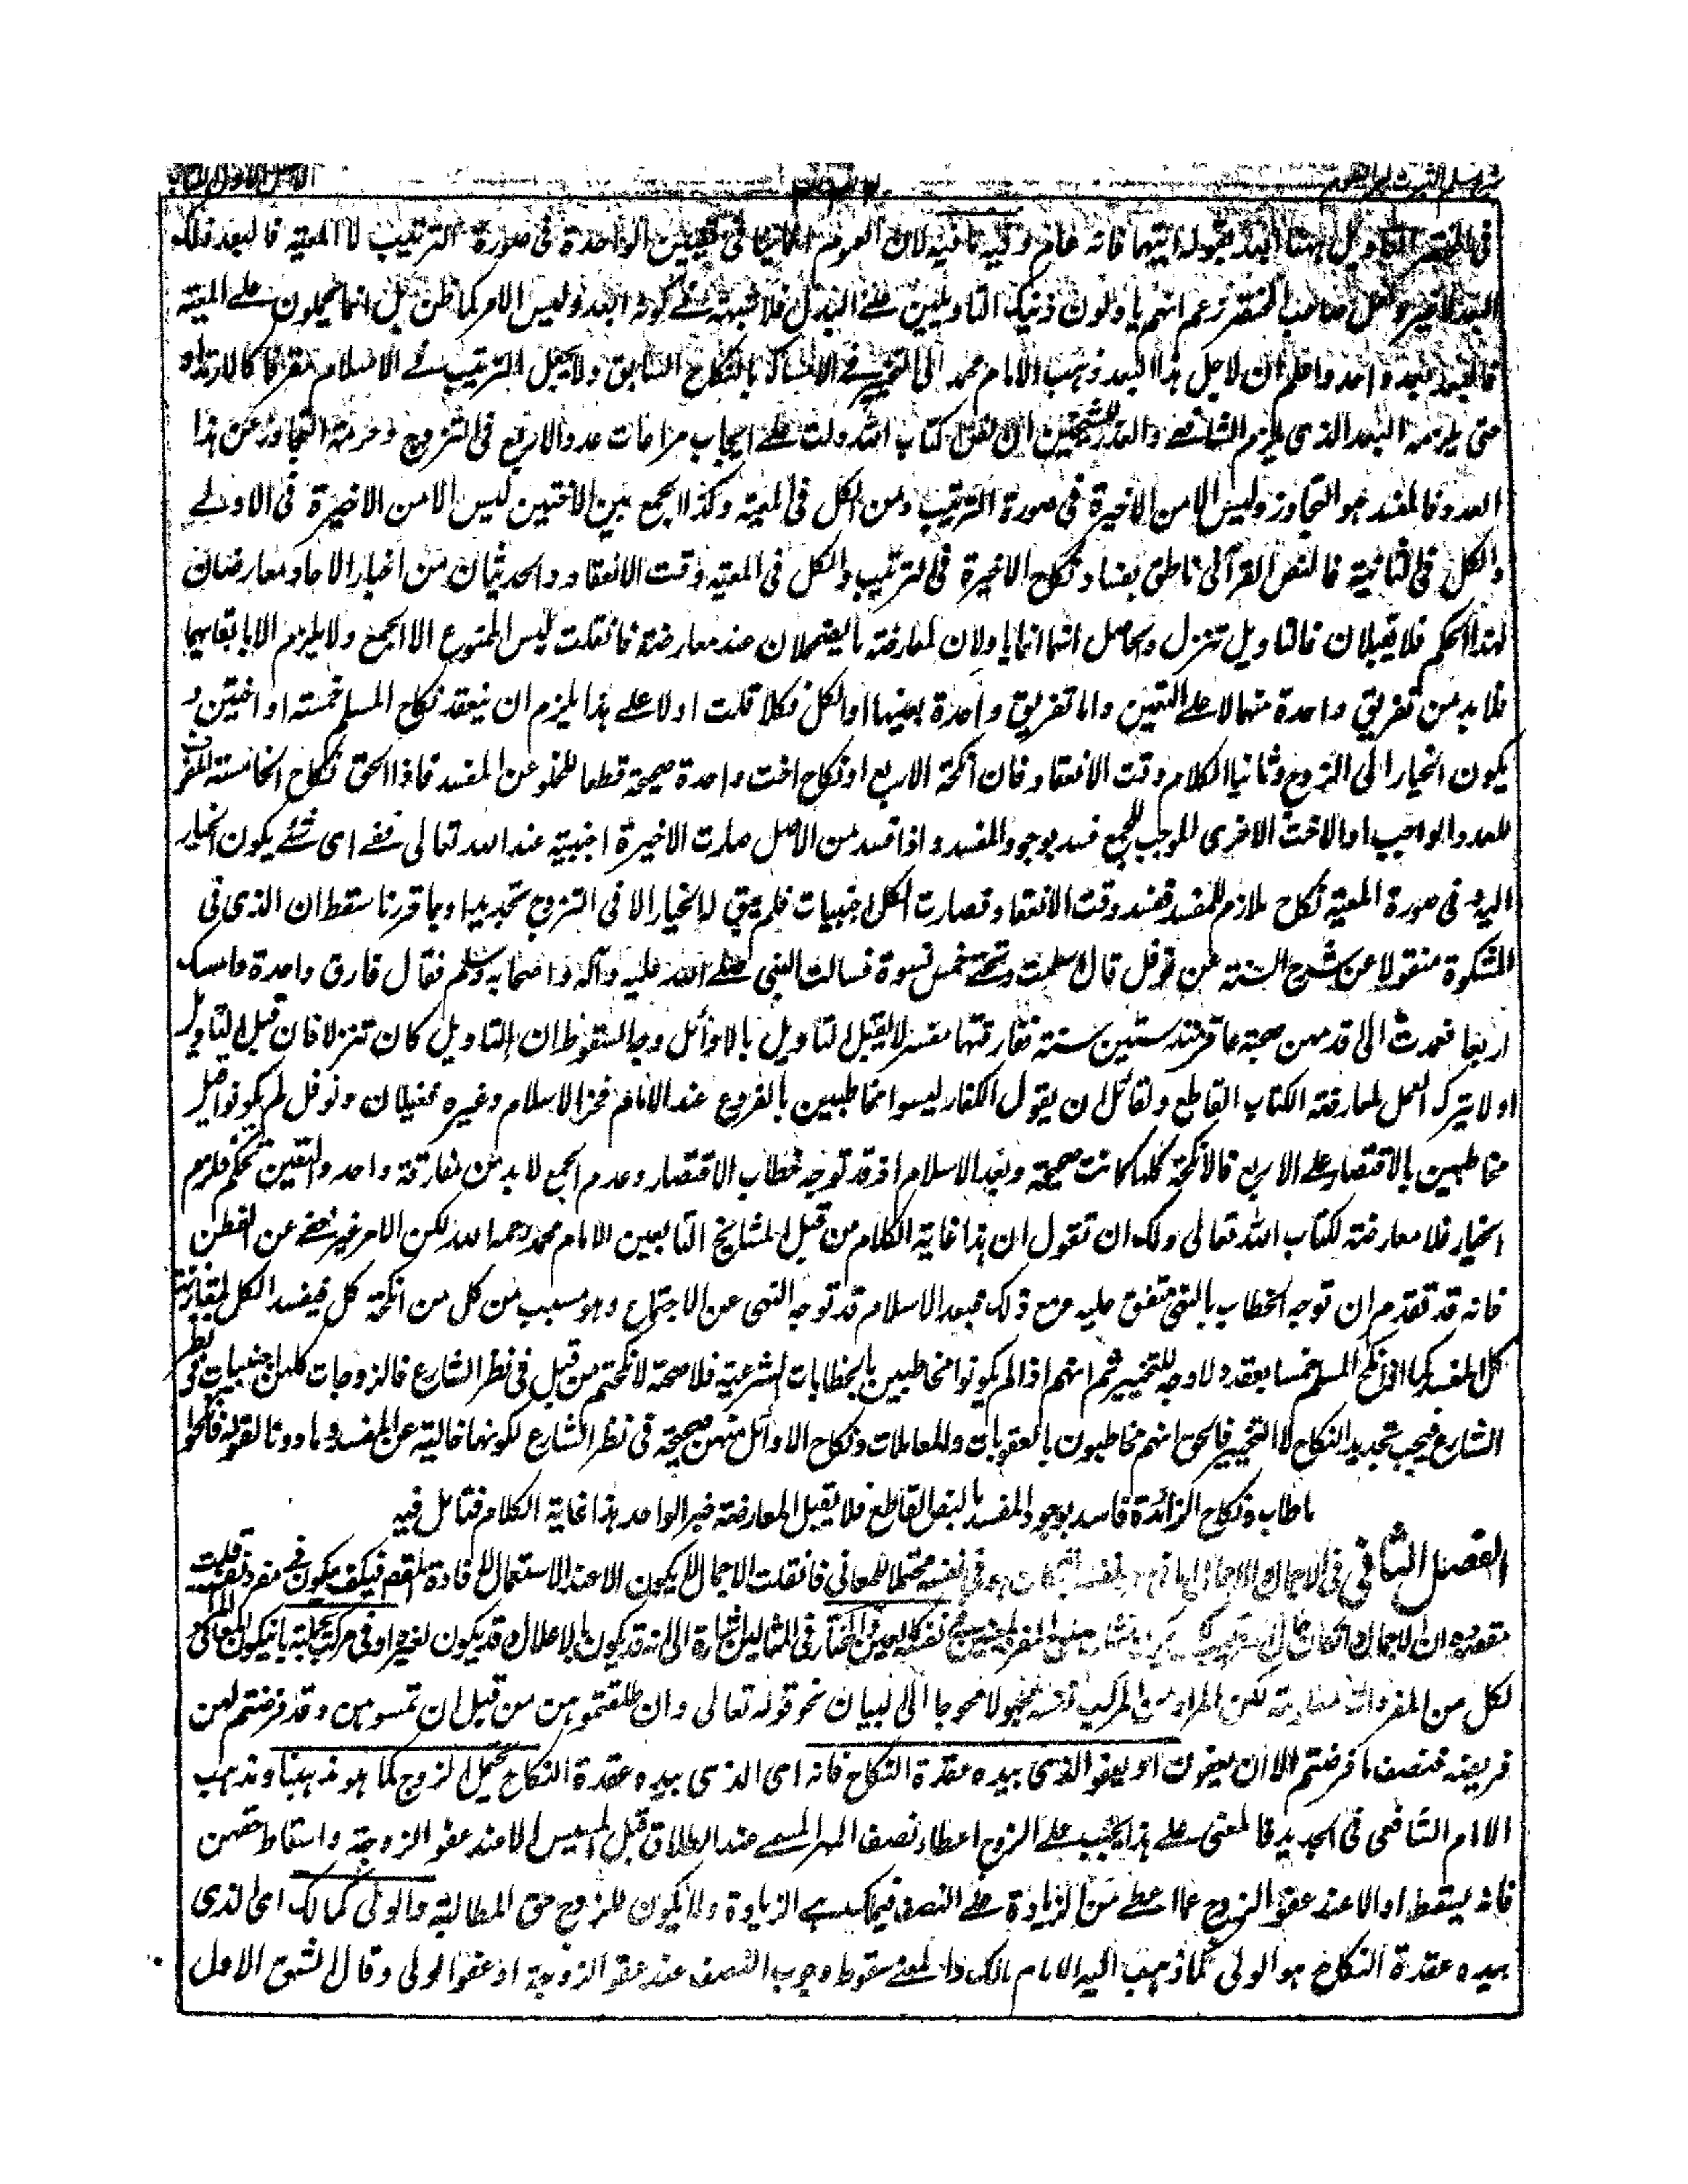 في المختصر التاويل ههنا ابعد بقوله ايتهما فانه عام وفيه ما فيه لان العموم لا ينافي تعيين الواحدة في صورة الترتيب لا المعية فالبعد ذلك
البعد لا غير ولعل صاحب المختصر زعم انهم ياولون ذينك التاويلين على البدل فلا شبهة في كونه ابعد وليس الامر كما ظن بل انما يحملون على المعية
فالبعد بعد واحد واعلم ان لاجل هذا البعد ذهب الامام محمد الى التخيير في الامساك بالنكاح السابق ولا يجعل الترتيب في الاسلام مفرقا كالارتداد
حتى يلزمه البعد الذي يلزم الشافعي والعذر للشيخين ان نص كتاب الله دلت على ايجاب مراعات عدد الاربع في التزوج وحرمة التجاوز عن هذا
العدد فالمفسد هو التجاوز وليس الا من الاخيرة في صورة الترتيب ومن الكل في المعية وكذا الجمع بين الاختين ليس الا من الاخيرة في الاولى
والكل في الثانية فالنص القرآني ناطق بفساد نكاح الاخيرة في الترتيب والكل في المعية وقت الانعقاد والحديثان من اخبار الاحاد ومعارضان
لهذا الحكم فلا يقبلان فالتاويل تنزل وحاصل انهما انما ياولان لمعارضة ما يضمحلان عند معارضة فانقلت ليس الممنوع الا الجمع ولا يلزم الا بابقائهما
فلا بد من تفريق واحدة منهما لا على التعيين واما تفريق واحدة بعينها او الكل فكلا قلت اولا على هذا يلزم ان ينعقد نكاح المسلم خمسة او اختين و
يكون الخيار الى الزوج وثانيا الكلام وقت الانعقاد فان انكحة الاربع او نكاح اخت واحدة صحيحة قطعا للخلو عن المفسد فاذا الحق نكاح الخامسة المفوت
للعدد الواجب او الاخت الاخرى الموجب للجمع فسد بوجود المفسد واذا فسد من الاصل صارت الاخيرة اجنبية عند الله تعالى ففي اى شئ يكون الخيار
اليه وفي صورة المعية نكاح ملازم للمفسد ففسد وقت الانعقاد فصارت الكل اجنبيات فلم يبق له الخيار الا في التزوج تجديدا وبما قررنا سقط ان الذي في
المشكوة منقولا عن شرح السنة عن نوفل قال اسلمت وتحتي خمس نسوة فسالت النبي صلى الله عليه وآله واصحابه وسلم فقال فارق واحدة وامسك
اربعا فعمدت الى اقدمهن صحبة عاقر منذ ستين سنة ففارقتها مفسر لا يقبل التاويل بالاوائل وجه السقوط ان التاويل كان تنزلا فان قبل التاويل
اولا يترك العمل لمعارضة الكتاب القاطع ولقائل ان يقول الكفار ليسوا مخاطبين بالفروع عند الامام فخر الاسلام وغيره فغيلان ونوفل لم يكونوا قبل
مخاطبين بالاقتصار على الاربع فالانكحة كلها كانت صحيحة وبعد الاسلام اذ قد توجه خطاب الاقتصار وعدم الجمع لا بد من مفارقة واحد والتعيين تحكم فلزم
الخيار فلا معارضة لكتاب الله تعالى ولك ان تقول ان هذا غاية الكلام من قبل المشايخ التابعين الامام محمد رحمه الله لكن الامر غير خفى عن الفطن
فانه قد تقدم ان توجه الخطاب بالنهى متفق عليه ومع ذلك فبعد الاسلام قد توجه النهى عن الاجتماع وهو مسبب من كل من انكحة كل فيفسد الكل لمقارنة
كل المفسد كما اذا نكح المسلم خمسا بعقد ولا وجه للتخيير ثم انهم اذا لم يكونوا مخاطبين بالخطابات الشرعية فلا صحة لانكحتهم من قبل في نظر الشارع فالزوجات كلهن اجنبيات في نظر
الشارع فيجب تجديد النكاح لا التخيير فالحق انهم مخاطبون بالعقوبات والمعاملات ونكاح الاوائل منهن صحيحة في نظر الشارع لكونها خالية عن المفسد وما دونا لقوله فانكحوا
ما طاب ونكاح الزائدة فاسد بوجود المفسد بالنص القاطع فلا يقبل المعارضة خبر الواحد هذا غاية الكلام فتامل فيه
الفصل الثاني في الاجمال في نفسه محتملا للمعاني فانقلت الاجمال لا يكون الا عند الاستعمال للافادة فكيف يكون في مفرد بنفسه قلت
مقصوده ان الاجمال في المثالين اشارة الى انه قد يكون بالاعلال وقد يكون لغيره او في مركب بجملته بان يكون المعاني
لكل من المفردات معلومة لكن المراد من المركب نفسه مجهولا محوجا الى البيان نحو قوله تعالى وان طلقتموهن من قبل ان تمسوهن وقد فرضتم لهن
فريضة فنصف ما فرضتم الا ان يعفون او يعفو الذي بيده عقدة النكاح فانه اى الذي بيده عقدة النكاح يحتمل الزوج كما هو مذهبنا ومذهب
الامام الشافعي في الجديد فالمعنى على هذا يجب على الزوج اعطاء نصف المهر المسمى عند الطلاق قبل المسيس الا عند عفو الزوجة واسقاط حقهن
فانه يسقط او الا عند عفو الزوج عما اعطى من الزيادة على النصف فيملك هي الزيادة ولا يكون للزوج حق المطالبة والولي كمالك اى الذي
بيده عقدة النكاح هو الولي كما ذهب اليه الامام مالك والمعنى سقوط وجوب النصف عند عفو الزوجة او عفو الولي وقال الشق الاول